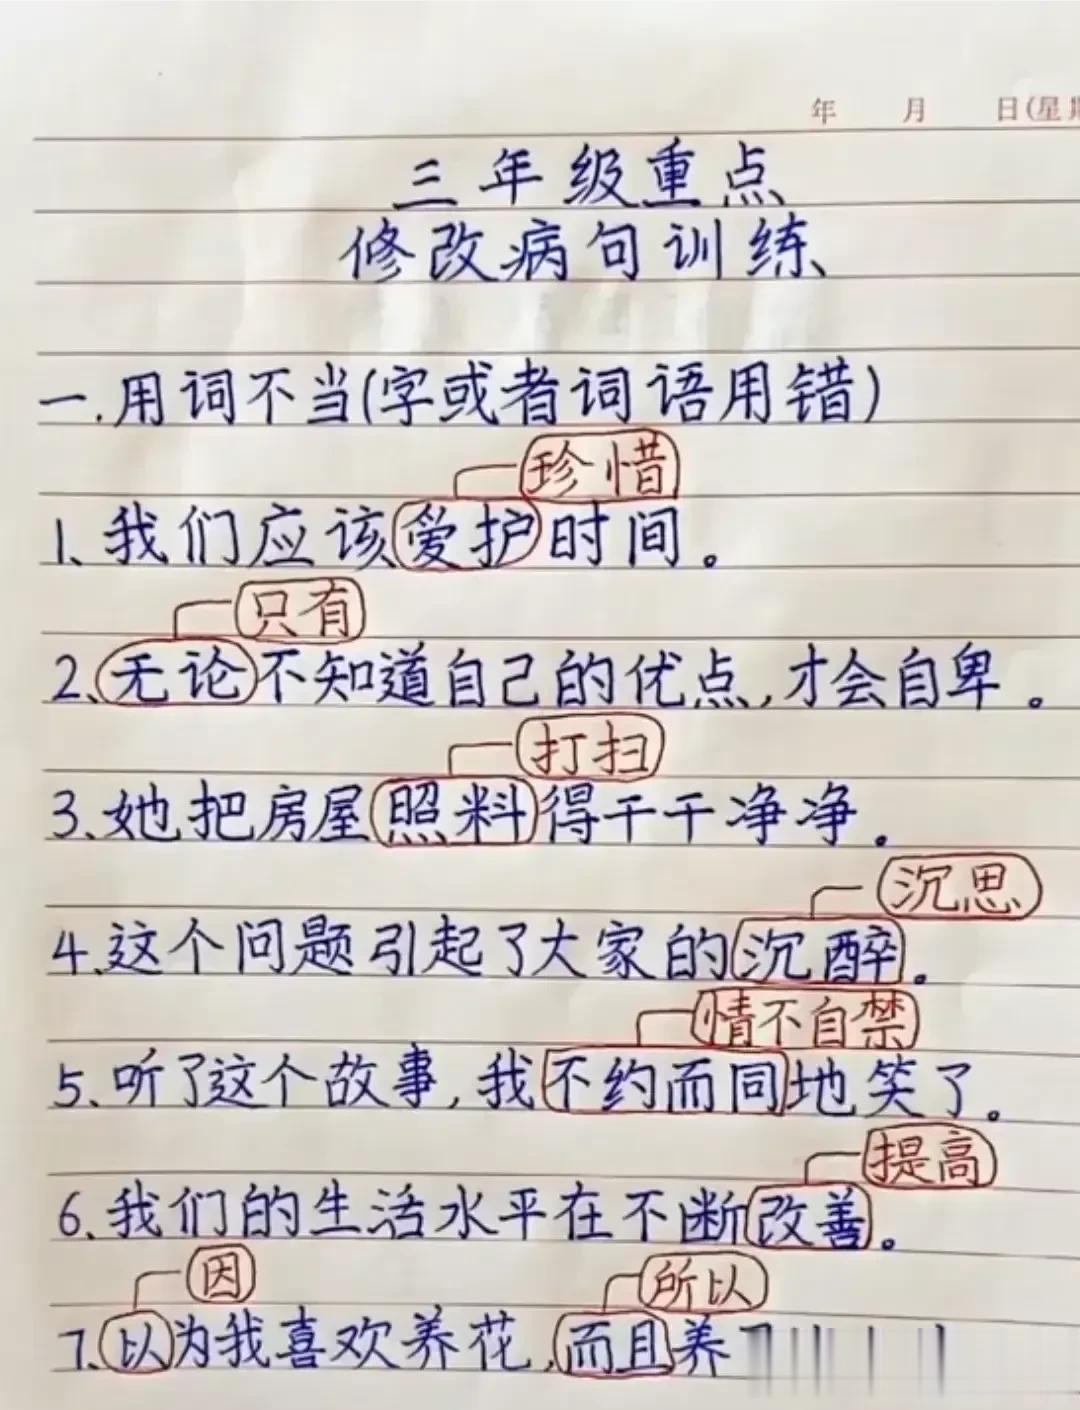 年 月 日(星期
三年级重点
修改病句训练
一.用词不当(字或者词语用错)
珍惜
1、我们应该爱护时间。
只有
2、无论不知道自己的优点,才会自卑。
打扫
3、她把房屋照料得干干净净。
沉思
4、这个问题引起了大家的沉醉。
情不自禁
5、听了这个故事,我不约而同地笑了。
提高
6、我们的生活水平在不断改善。
因 所以
7、以为我喜欢养花,而且养了